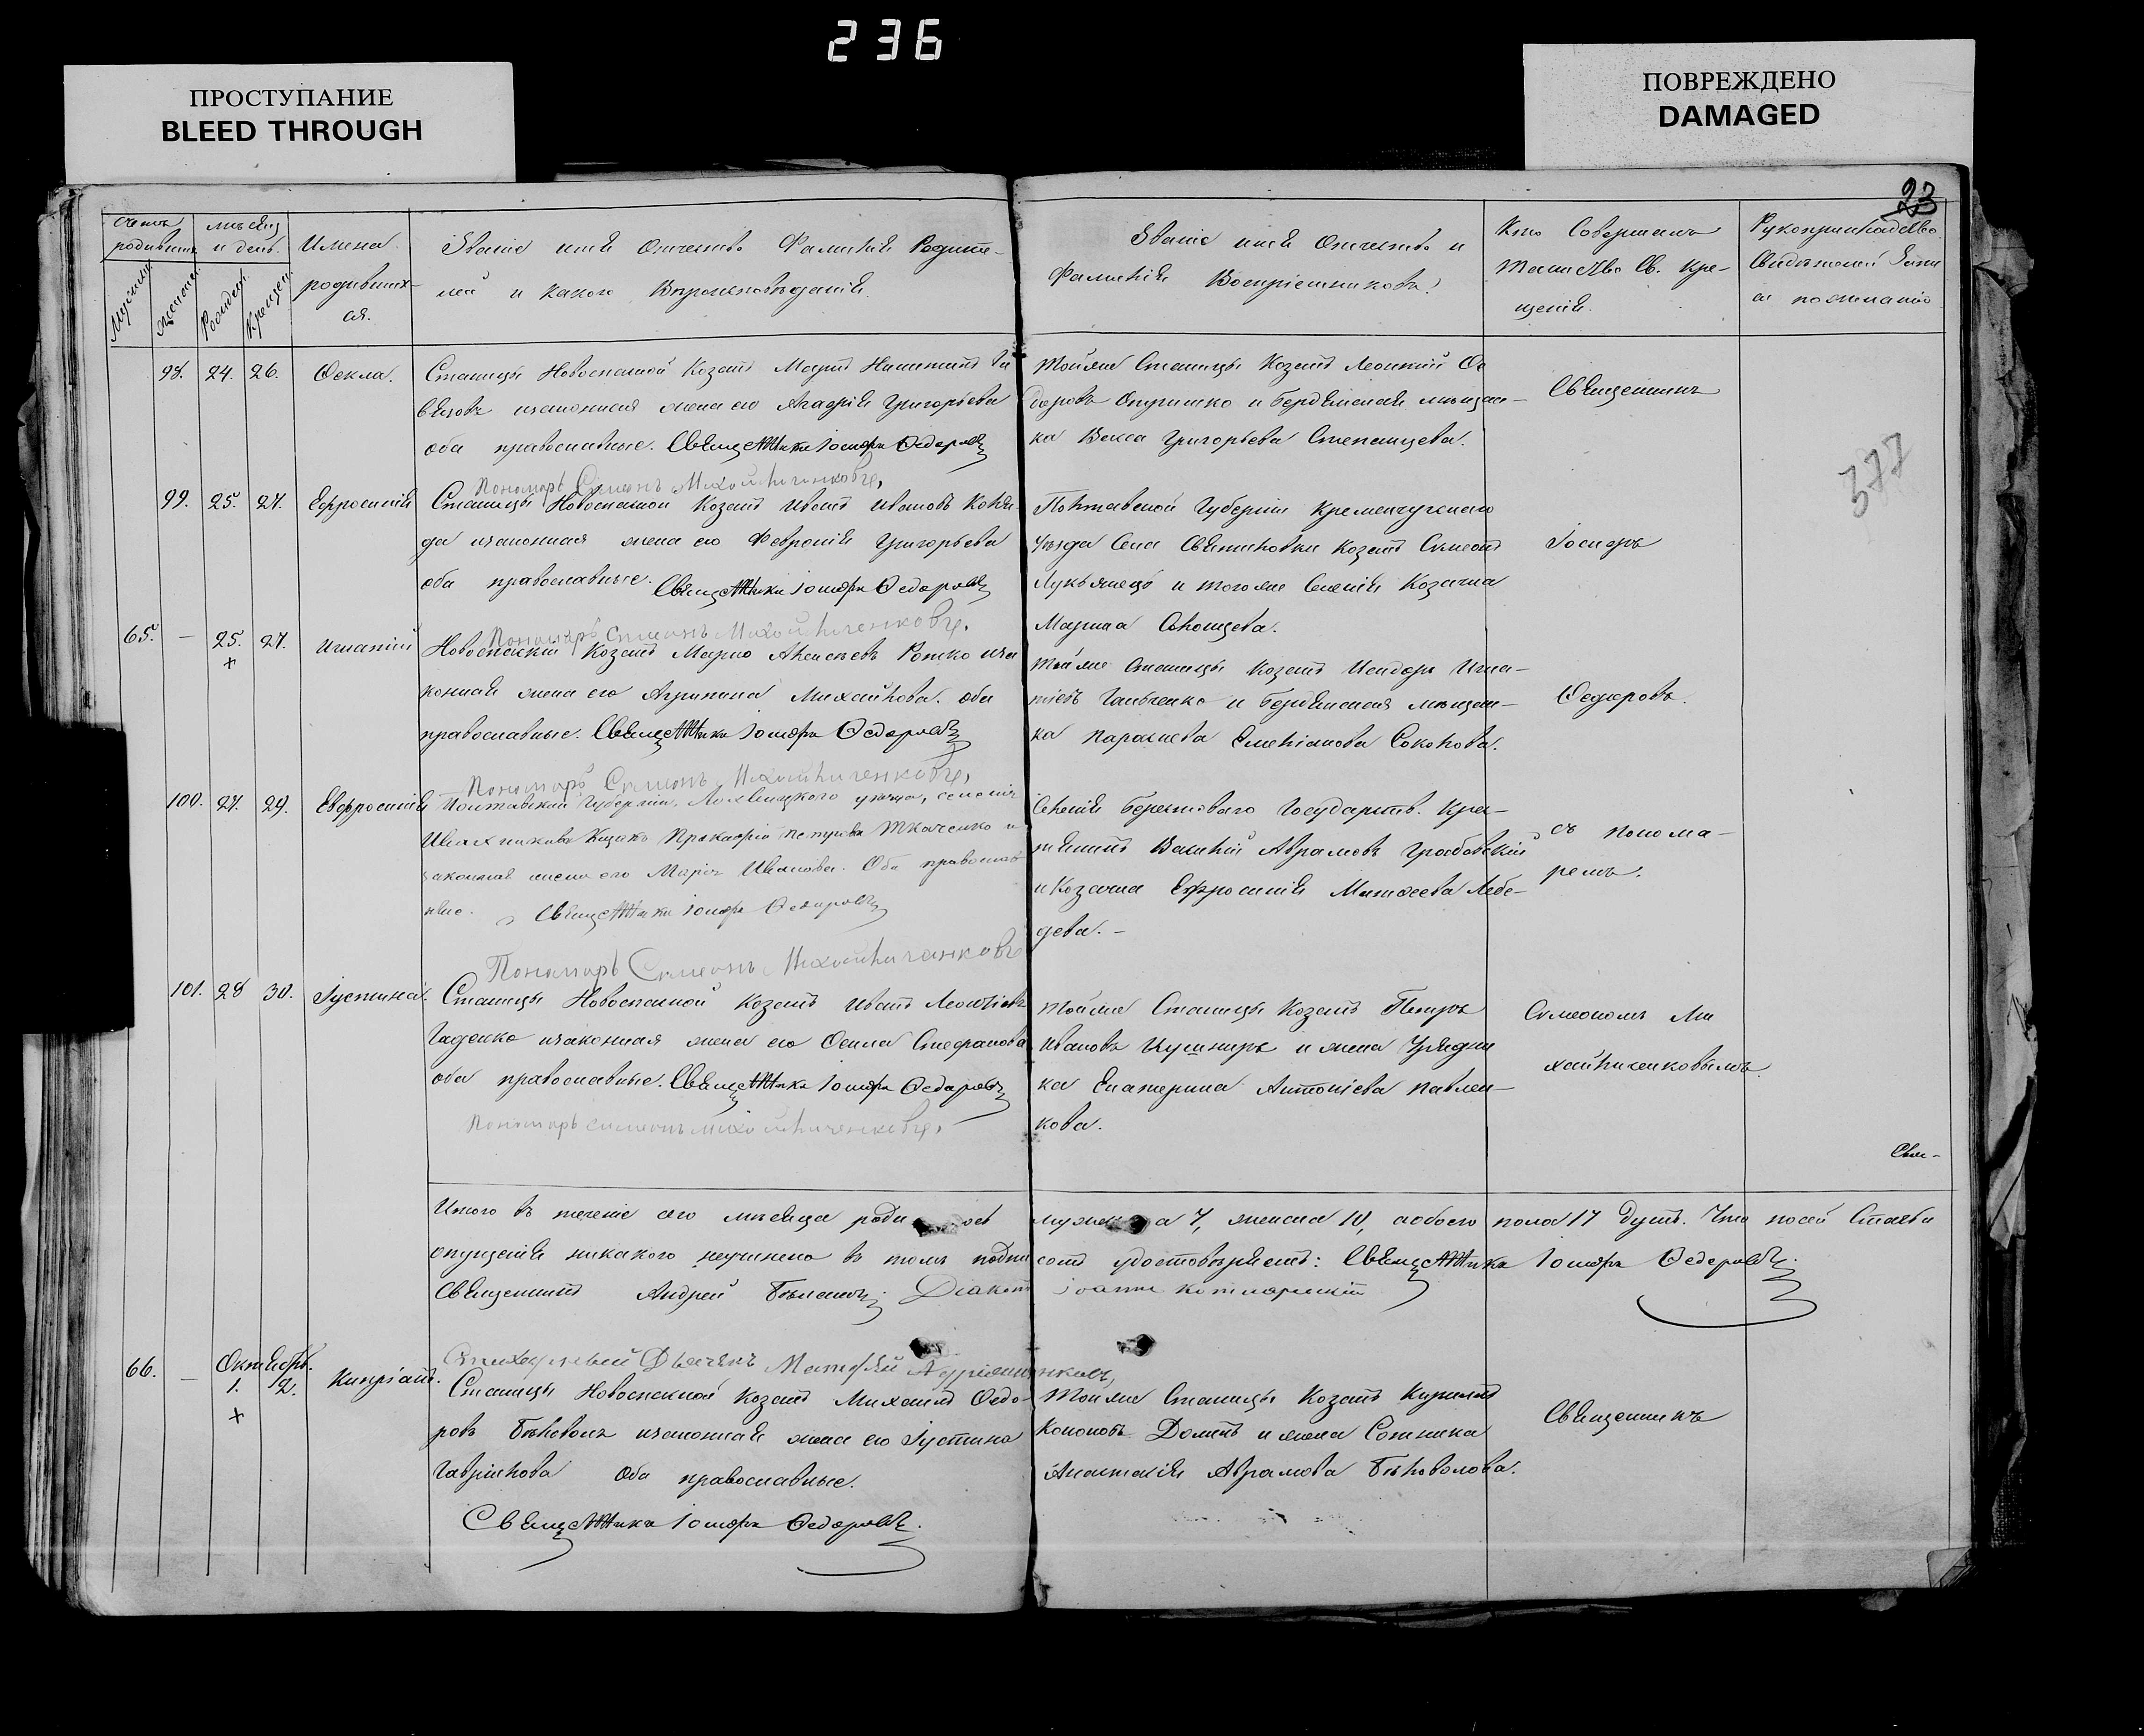 236
ПРОСТУПАНИЕ
BLEED THROUGH
ПОВРЕЖДЕНО
DAMAGED
23
счетъ родившихся
мѣсяцъ и день
Имена родившихся.
Званіе имя Отчество Фамилія Родителей и какого Вѣроисповѣданія
Званіе имя Отчество и Фамилія Воспріемниковъ
Кто Совершалъ Таинство Св. Крещенія.
Рукоприкладство Свидѣтелей записи по желанію
98. 24. 26. Ѳекла.
Станицы Новоспасской Козакъ
законная жена его Агафія Григорьева
оба православные. Священникъ Іосифъ Ѳедоровъ
Пономарь Симеонъ Михайличенковъ
Тойже Станицы Козакъ Леонтій Ѳе
доровъ и Бердянская мѣщан-
ка Васса Григорьева Степанцева.
Священникъ
377
99. 25. 27. Ефросинія
Станицы Новоспасской Козакъ Иванъ Ивановъ
да законная жена его Февронія Григорьева
оба православные. Священникъ Іосифъ Ѳедоровъ
Пономарь Симеонъ Михайличенковъ
Полтавской Губерніи Кременчугскаго
Уѣзда Села Козакъ Симеонъ
и тогоже Селенія Козачка
Марина
Іосифъ
65. — 25. 27. Игнатій
Новоспасскій Козакъ Марко Алексѣевъ и за
конная жена его Агрипина Михайлова. оба
православные. Священникъ Іосифъ Ѳедоровъ
Пономарь Симеонъ Михайличенковъ
тойже станицы Козакъ Исидоръ Игна-
тіевъ и Бердянская мѣщан-
ка Параскева Емеліанова Соколова.
Ѳедоровъ.
100. 27. 29. Евфросинія
Полтавской Губерніи, Лохвицкого уѣзда, селенія
Козакъ Прокофій Петровъ Ткаченко и
законная жена его Марія Иванова. Оба православ
ные. Священникъ Іосифъ Ѳедоровъ
Пономарь Симеонъ Михайличенковъ
Селенія Берестоваго Государств. Кре-
стьянинъ Василій Аврамовъ Грабовскій
и Козачка Ефросинія Матѳеева Лебе-
дева. -
съ понома-
ремъ.
101. 28 30. Іустина.
Станицы Новоспасской Козакъ Иванъ Леонтіевъ
Гаденко законная жена его Стефанова
оба православные. Священникъ Іосифъ Ѳедоровъ
Пономарь Симеонъ Михайличенковъ
Тойже Станицы Козакъ Петръ
Ивановъ Кушниръ и жена Урядни
ка Екатерина Антоніева Павлен-
кова.
Симеономъ Ми
хайличенковымъ.
Свя-
Итого въ теченіе сего мѣсяца мужеска 7, женска 10, а обоего пола 17 душъ. Что по сей Статьи
опущенія никакого неучинено въ томъ удостовѣряемъ: Священникъ Іосифъ Ѳедоровъ.
Священникъ Андрей Діаконъ Іоаннъ Котляревскій
Стихарный Дьячекъ Матѳей
66. — Октябрь. 1. 2. Кипріанъ.
Станицы Новоспасской Козакъ Михаилъ Ѳедо-
ровъ Бѣловолъ законная жена его Іустина
Гаврилова Оба православные.
Священникъ Іосифъ Ѳедоровъ.
Тойже Станицы Козакъ Кириллъ
Кононовъ и жена Сотника
Анастасія Аврамова Бѣловолова.
Священникъ